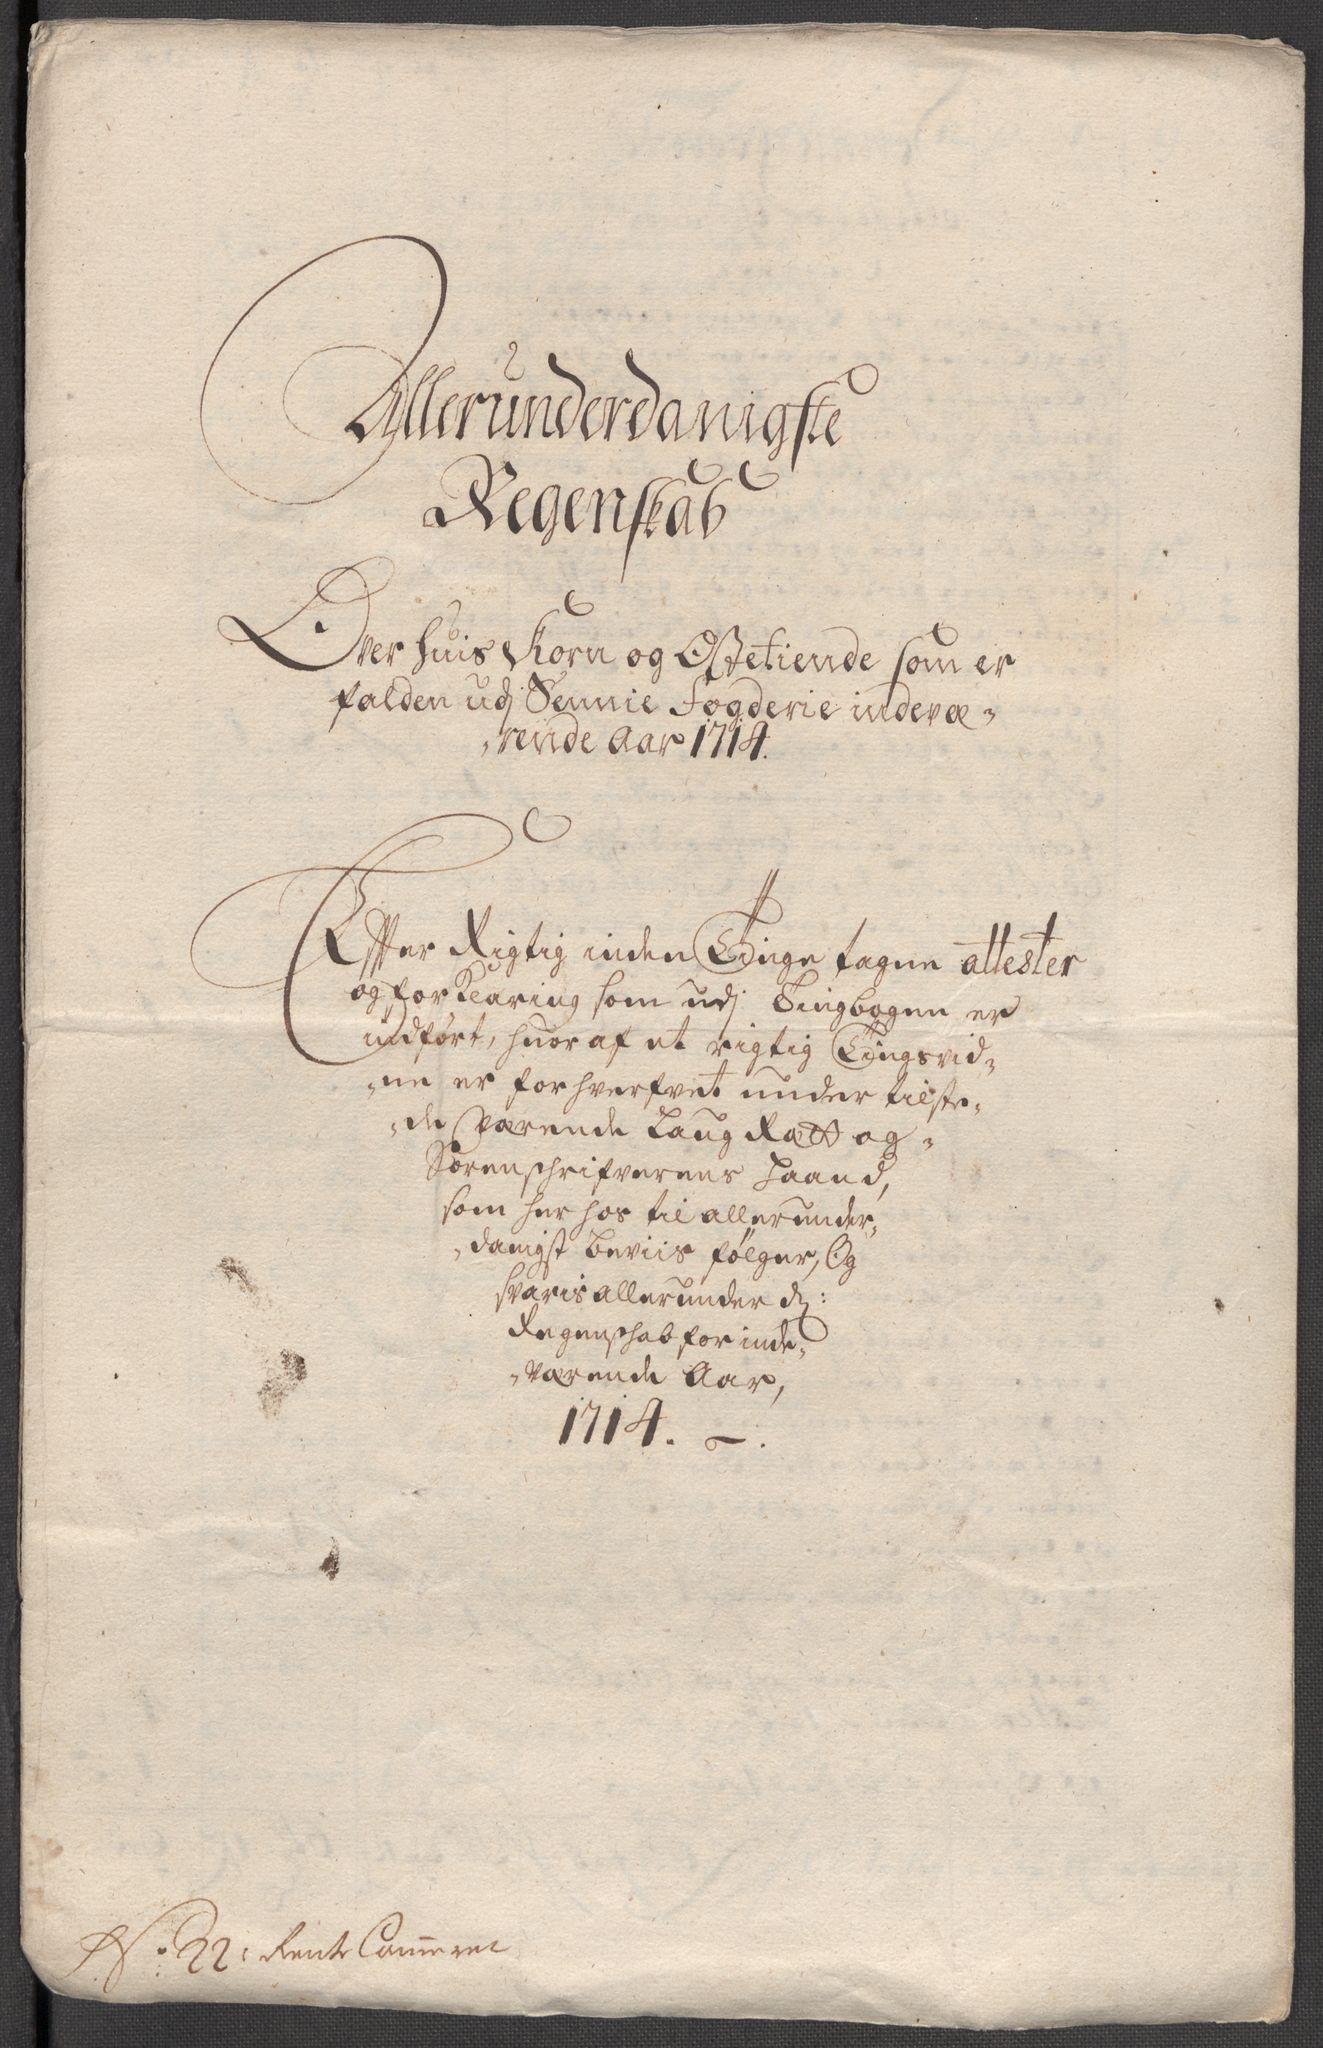 Allerunderdanigste
Regenskab
Over huis Korn og Ostetiende som er
falden udj Sennie Fogderie indevæ-
-rende Aar 1714.
Effter Rigtig inden Tinge tagne attester
og forklaring som udj Tingbogen er
indført, huor af et rigtig Tingsvid-
-ne er forhverfvet under tilste-
-de værende Laug Rætt og-
Sorenschrifverens Haand,
som her hos til allerunder-
-danigst beviis følger, Og
svaris allerunder d:
Regenschab for inde-
-værende Aar,
1714.
No. 22: Rente Cammeret